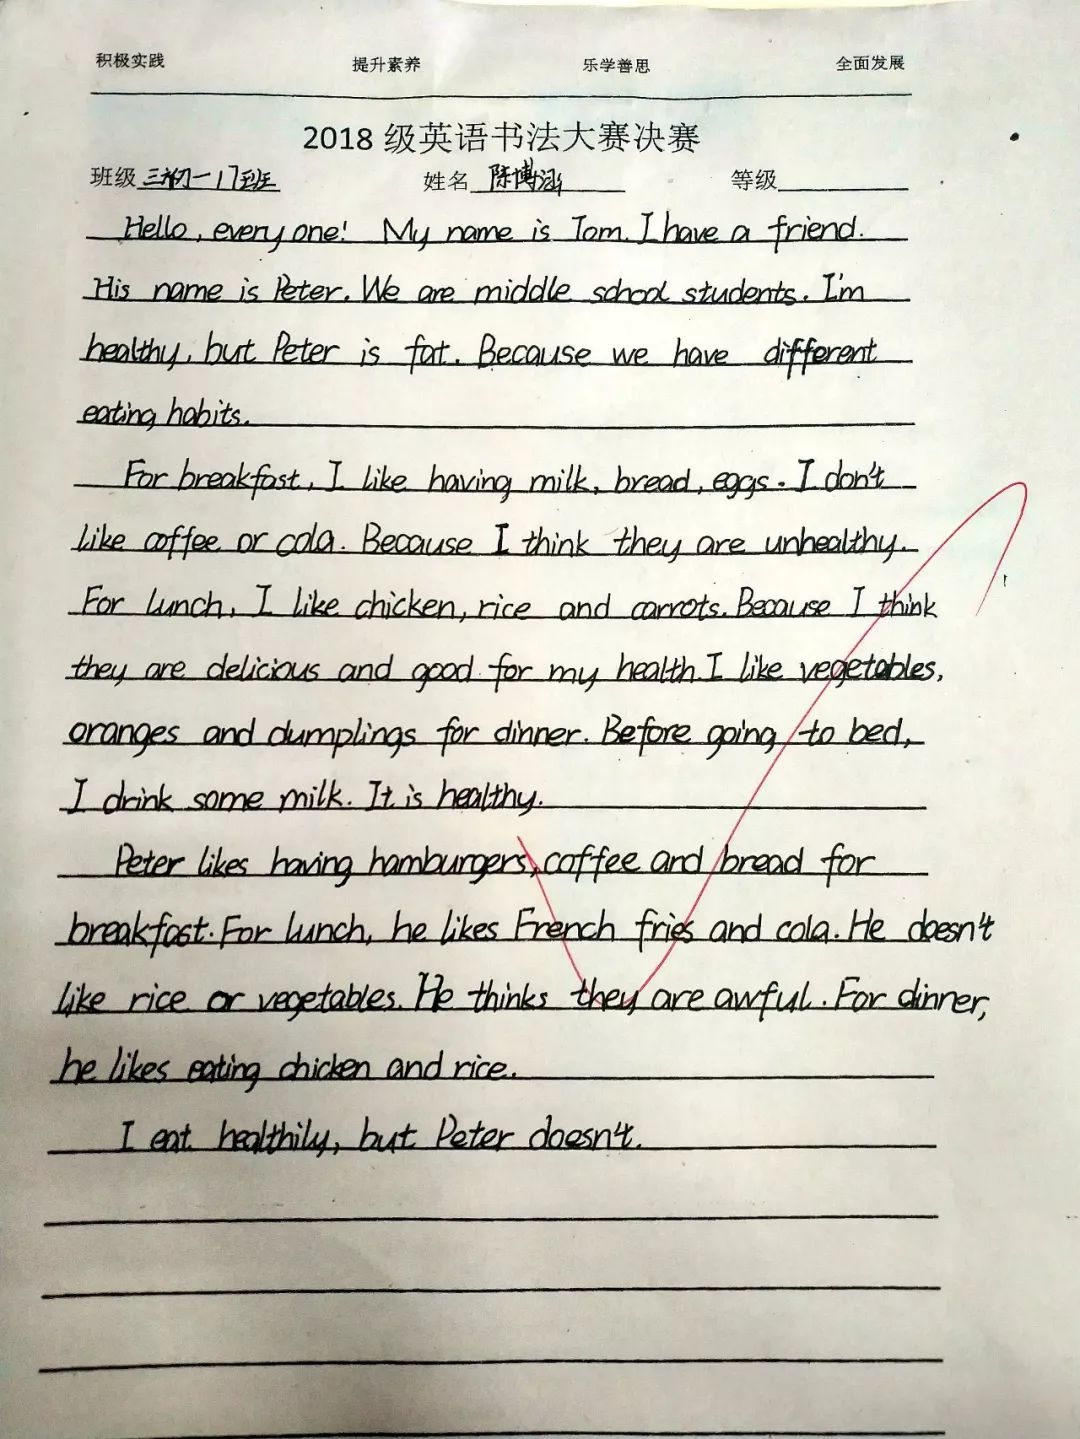 积极实践 提升素养 乐学善思 全面发展
2018 级英语书法大赛决赛
班级 三初一17班 姓名 陈博涵 等级
Hello, everyone! My name is Tom. I have a friend.
His name is Peter. We are middle school students. I'm
healthy, but Peter is fat. Because we have different
eating habits.
For breakfast, I like having milk, bread, eggs. I don't
like coffee or cola. Because I think they are unhealthy.
For lunch, I like chicken, rice and carrots. Because I think
they are delicious and good for my health. I like vegetables,
oranges and dumplings for dinner. Before going to bed,
I drink some milk. It is healthy.
Peter likes having hamburgers, coffee and bread for
breakfast. For lunch, he likes French fries and cola. He doesn't
like rice or vegetables. He thinks they are awful. For dinner,
he likes eating chicken and rice.
I eat healthily, but Peter doesn't.